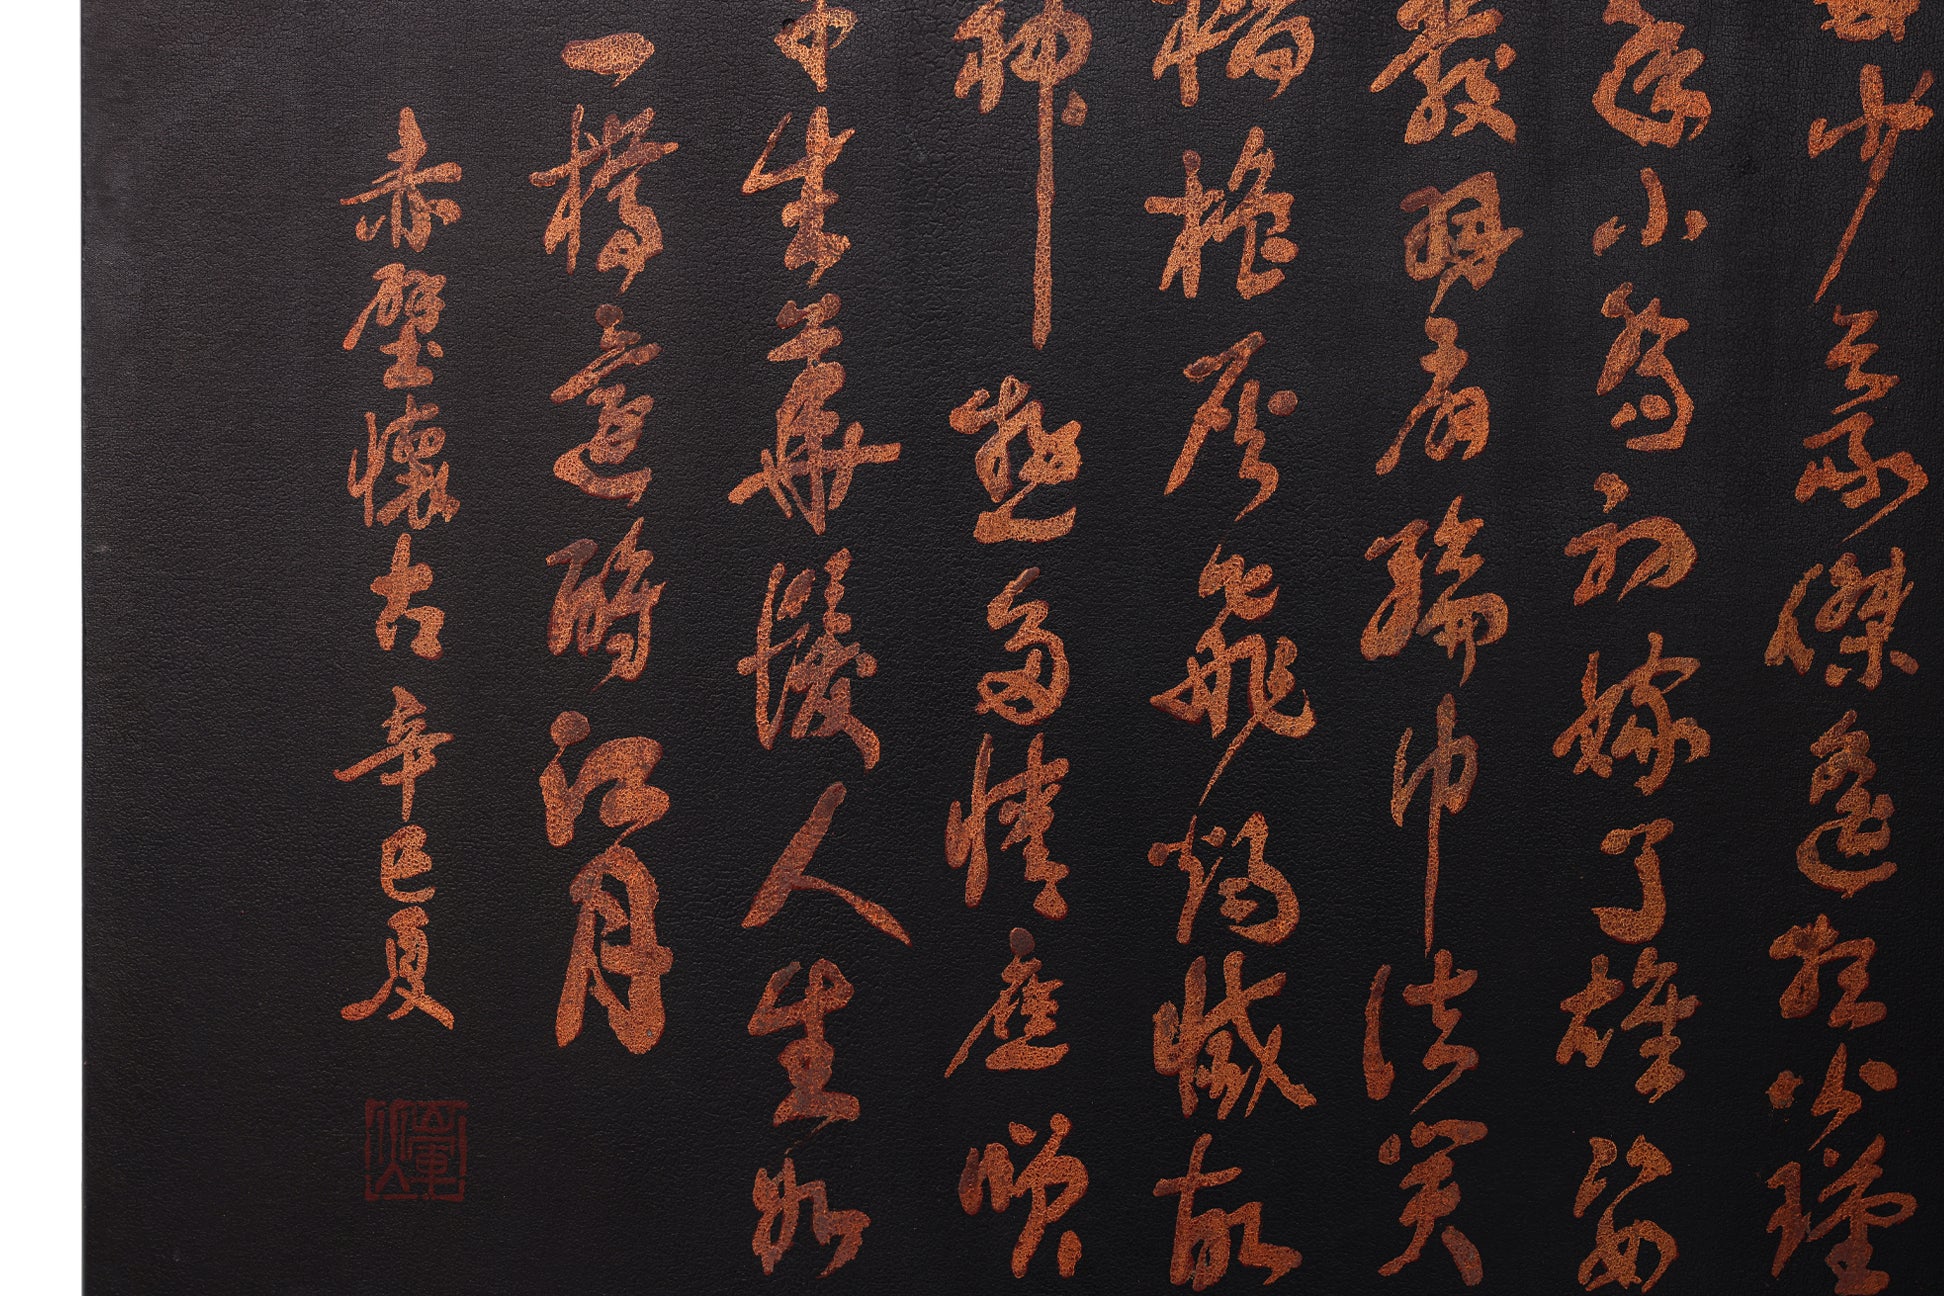 少豪傑遙想公瑾
年小喬初嫁了雄姿
發羽扇綸巾談笑
檣櫓灰飛煙滅故
神遊多情應
生華髮人生如
一樽還酹江月
赤壁懷古 辛巳夏